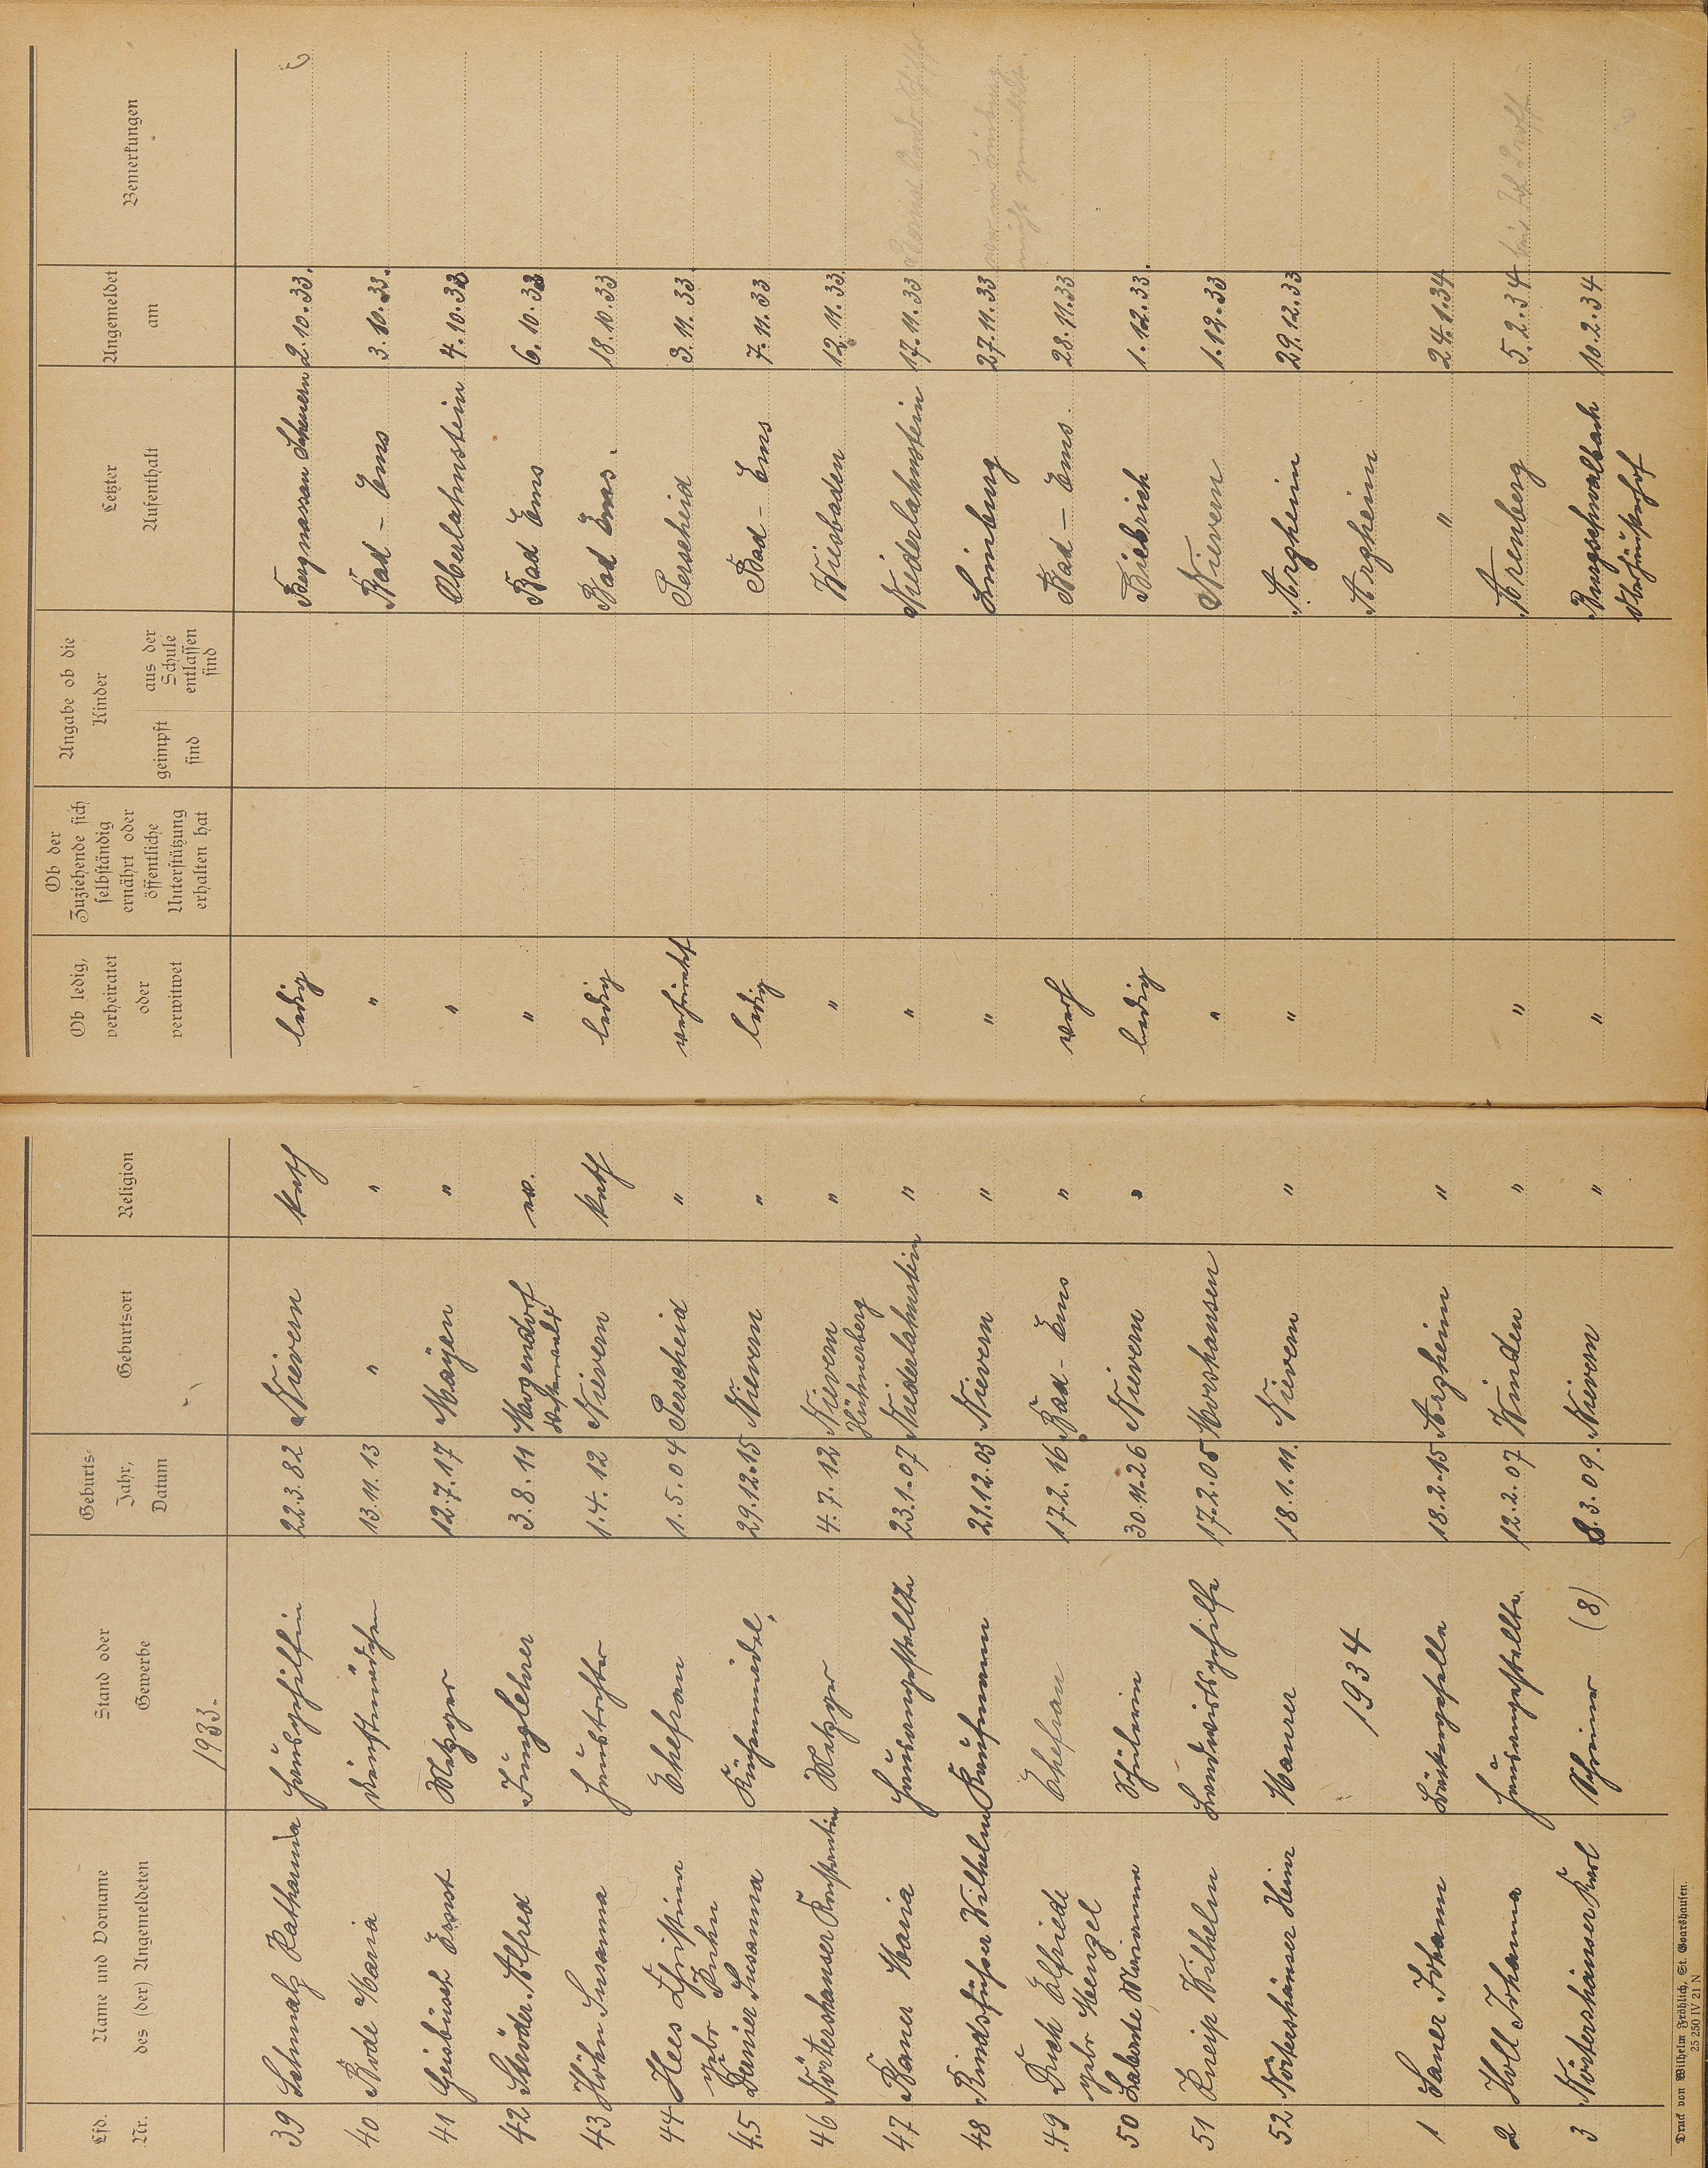 Lfd. Nr. Name und Vorname des (der) Angemeldeten Stand oder Gewerbe Geburts-Jahr, Datum Geburtsort Religion Ob ledig, verheiratet oder verwitwet Ob der Zuziehende sich selbständig ernährt oder öffentliche Unterstützung erhalten hat Angabe ob die Kinder geimpft sind aus der Schule entlassen sind Letzter Aufenthalt Angemeldet am Bemerkungen
1933.
39 Schmalz Katharina Hausgehilfin 22.3.82 Nievern kath ledig Bergnassau Scheuern 2.10.33.
40 Bode Maria Dienstmädchen 13.11.13 " " " Bad-Ems 3.10.33.
41 Geisbüsch Ernst Metzger 12.7.17 Mayen " " Oberlahnstein 4.10.33
42 Ströder Alfred Junglehrer 3.8.11 Mogendorf Westerwald ev. " Bad Ems 6.10.33
43 Höhn Susanna Haustochter 1.4.12 Nievern kath ledig Bad Ems. 18.10.33
44 Hees Christine Ehefrau 1.5.04 Perscheid " verheirat Perscheid 3.11.33.
gebr
45 Susanna Küchenmädel, 29.12.15 Nievern " ledig Bad-Ems 7.11.33
46 Nörtershauser Konstantin Metzger 4.7.12 Nievern " " Wiesbaden 12.11.33.
Hühnerberg
47 Bauer Maria Hausangestellte 23.1.07 Niederlahnstein " " Niederlahnstein 17.11.33
48 Rindsfüßer Wilhelm Kaufmann 21.12.03 Nievern " " Limburg 27.11.33
49 Elfriede Ehefrau 17.2.16 Bad-Ems " verh Bad-Ems. 28.11.33
gebr Menzel
50 Marianne Schülerin 30.11.26 Nievern " ledig Biebrich 1.12.33.
51 Kneip Wilhelm Landwirtsgehilfe 17.2.05 Morshausen " Nievern 1.12.33
52 Nörtershäuser Heinr Maurer 18.1.11. Nievern " " Arzheim 29.12.33
1934 Arzheim
1 Sauer Johann 18.2.15 Arzheim " " 24.1.34
2 Holl Johanna Hausangestellte. 12.2.07 Winden " " Arenberg 5.2.34
3 Nörtershäuser Karl Schreiner (8) 8.3.09. Nievern " " Burgschwalbach 10.2.34
Druck von Wilhelm Fröhlich, St. Goarshausen.
25 250 IV 21 N